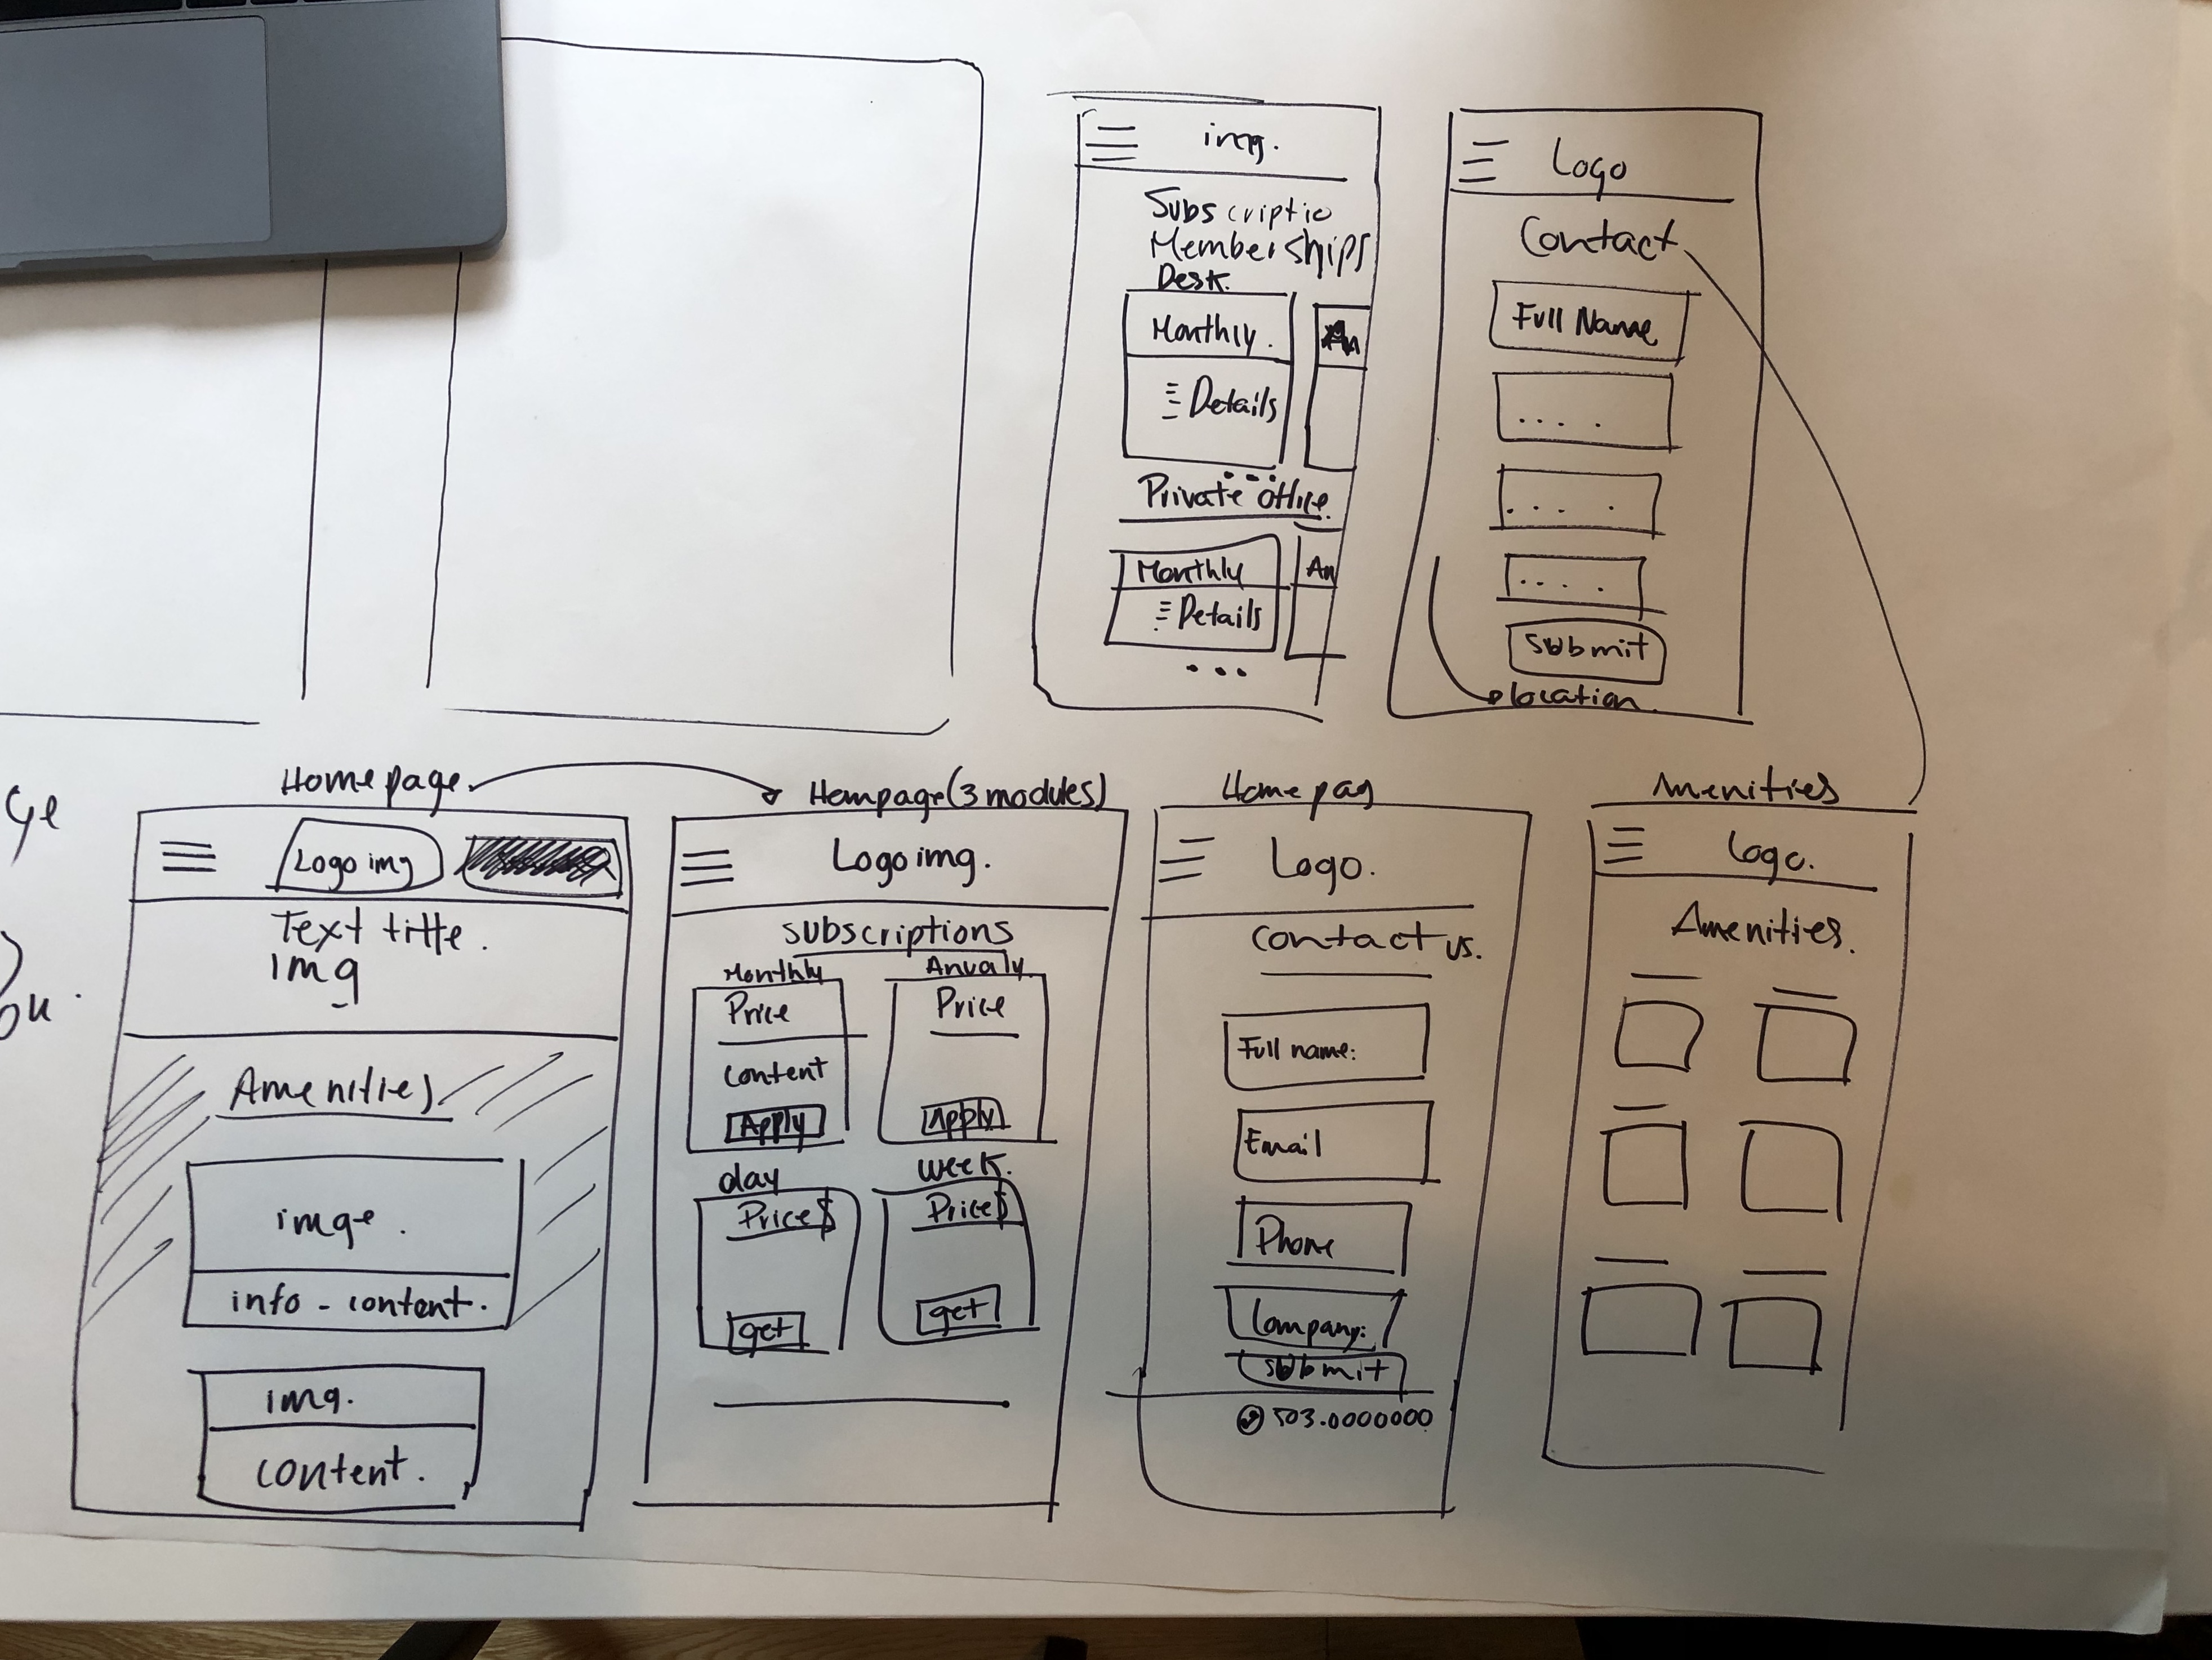 img.
Subscriptio
Memberships
Desk.
Monthly.
An
Details
Private office.
Monthly
An
Details
Logo
Contact
Full Name
submit
location.
Homepage
Logo img
Text title.
img
Amenities
imge.
info - content.
img.
content.
Hompage (3 modules)
Logo img.
subscriptions
Monthly
Anualy
Price
Price
content
Apply
Apply
day
week.
Price $
Price $
get
get
Home pag
Logo.
contact us.
Full name:
Email
Phone
Company:
submit
503.0000000
Amenities
Logo.
Amenities.